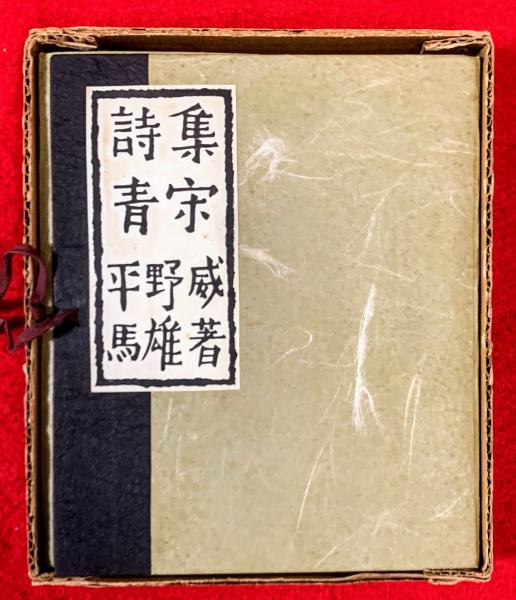 詩集
青宋
平野威
馬雄著